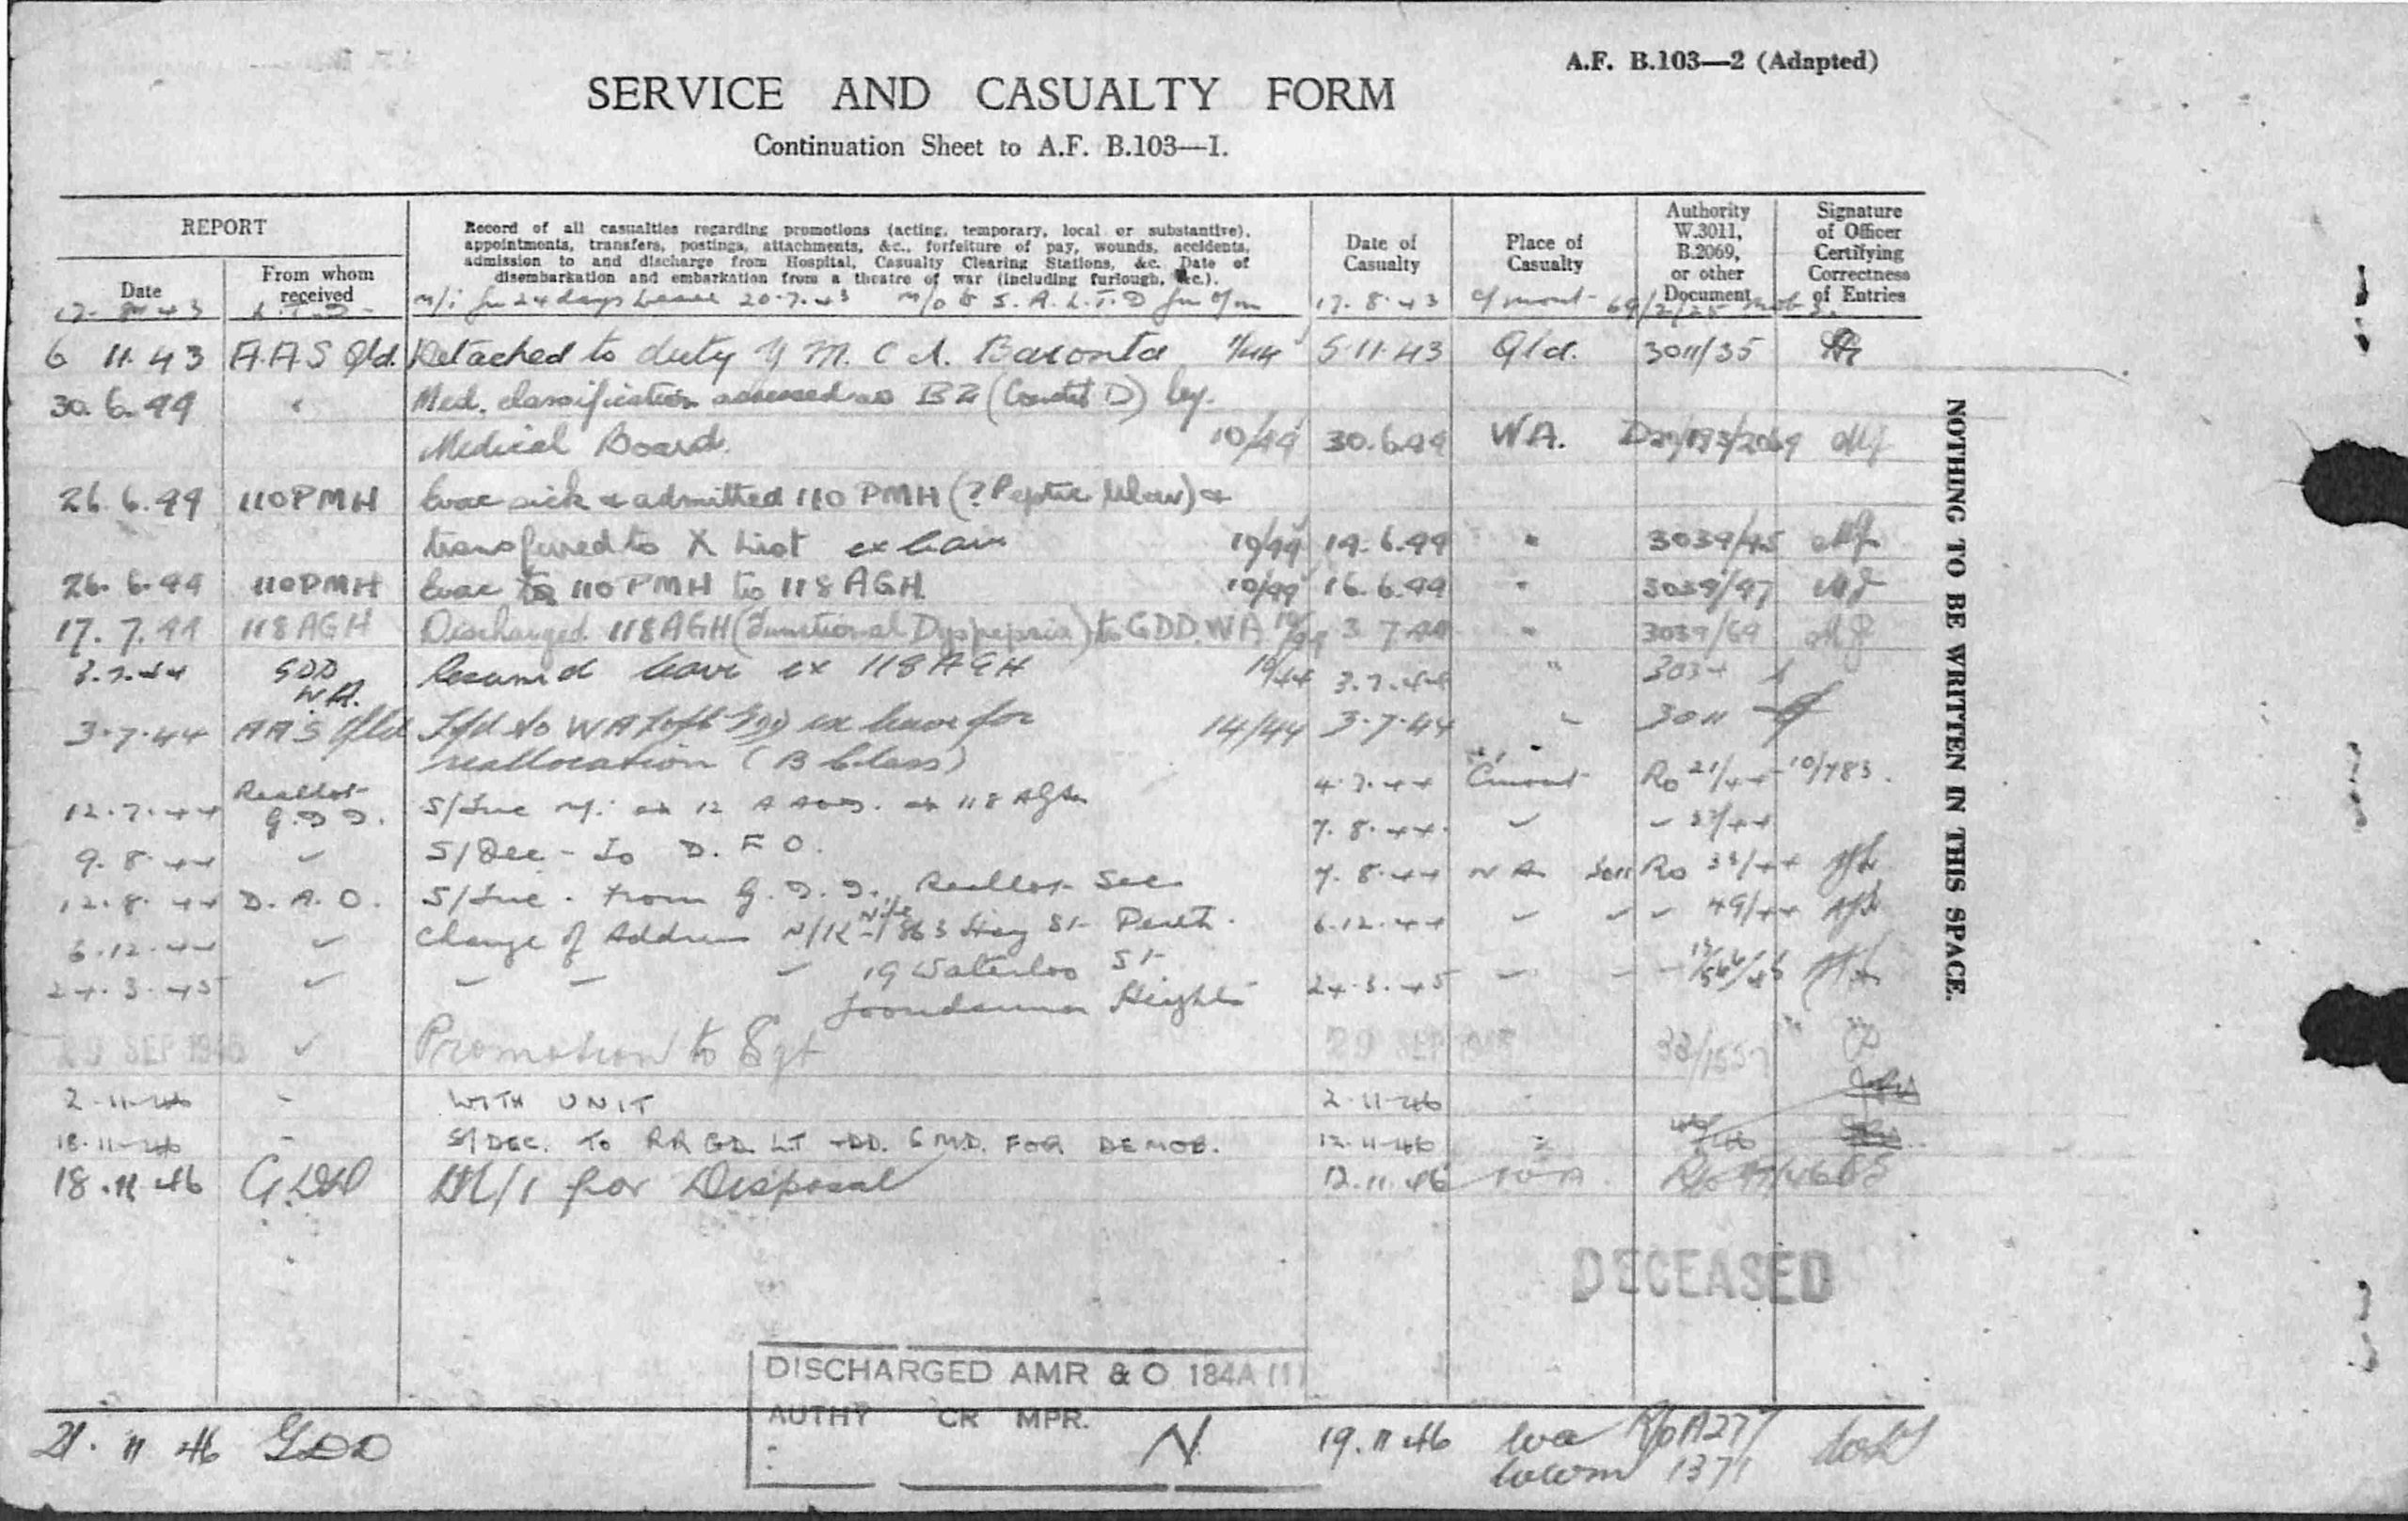 A.F. B.103—2 (Adapted)
SERVICE AND CASUALTY FORM
Continuation Sheet to A.F. B.103—I.
REPORT
Date
From whom received
Record of all casualties regarding promotions (acting, temporary, local or substantive),
appointments, transfers, postings, attachments, &c., forfeiture of pay, wounds, accidents,
admission to and discharge from Hospital, Casualty Clearing Stations, &c. Date of
disembarkation and embarkation from a theatre of war (including furlough, &c.).
Date of Casualty
Place of Casualty
Authority W.3011, B.2069, or other Document
Signature of Officer Certifying Correctness of Entries
m/i for 24 days leave 20.7.43 m/o to S.A.L.T.D 17.8.43
6 11.43 A.A.S Qld. Detached to duty Y M.C.A. 5.11.43 Qld. 3011/35
30.6.44 Med. classification assessed as B2 (Constit D) by
Medical Board. 10/44 30.6.44 WA.
26.6.44 110PMH Evac sick & admitted 110 PMH (? Peptic Ulcer) &
transferred to X List ex leave 10/44 14.6.44 " 3039/45
26.6.44 110PMH Evac to 110 PMH to 118 AGH 10/44 16.6.44 " 3039/47
17.7.44 118AGH Discharged 118AGH (Functional Dyspepsia) to GDD.WA 3 7 44 " 3039/69
3.7.44 GDD W.A. Resumed leave ex 118 AGH 10/44 3.7.44 "
3.7.44 AAS Qld ex leave for 14/44 3.7.44 3011
reallocation (B Class)
12.7.44 Reallot G.D.D. 4.7.44 C'mont Ro 21/44 10/783
9.8.44 S/Dec - To D.F.O. 7.8.44 33/44
12.8.44 D.A.O. S/Inc. From G.D.D., Reallot Sec 7.8.44 WA 3011 Ro 33/44
6.12.44 Change of Address N/K Wife 863 Hay St Perth. 6.12.44 49/44
24.3.45 19 Waterloo St 24.3.45
Joondanna Heights
29 SEP 1945 Promotion to Sgt 29 SEP 1945
2-11-46 WITH UNIT 2-11-46
18-11-46 S/DEC. TO FOR DEMOB. 12-11-46
18.11.46 GDD M/I for Disposal 12.11.46 WA
DECEASED
DISCHARGED AMR & O 184A (1)
AUTHY CR MPR.
21.11.46 GDD N 19.11.46 WA R/o A277
1371
NOTHING TO BE WRITTEN IN THIS SPACE.